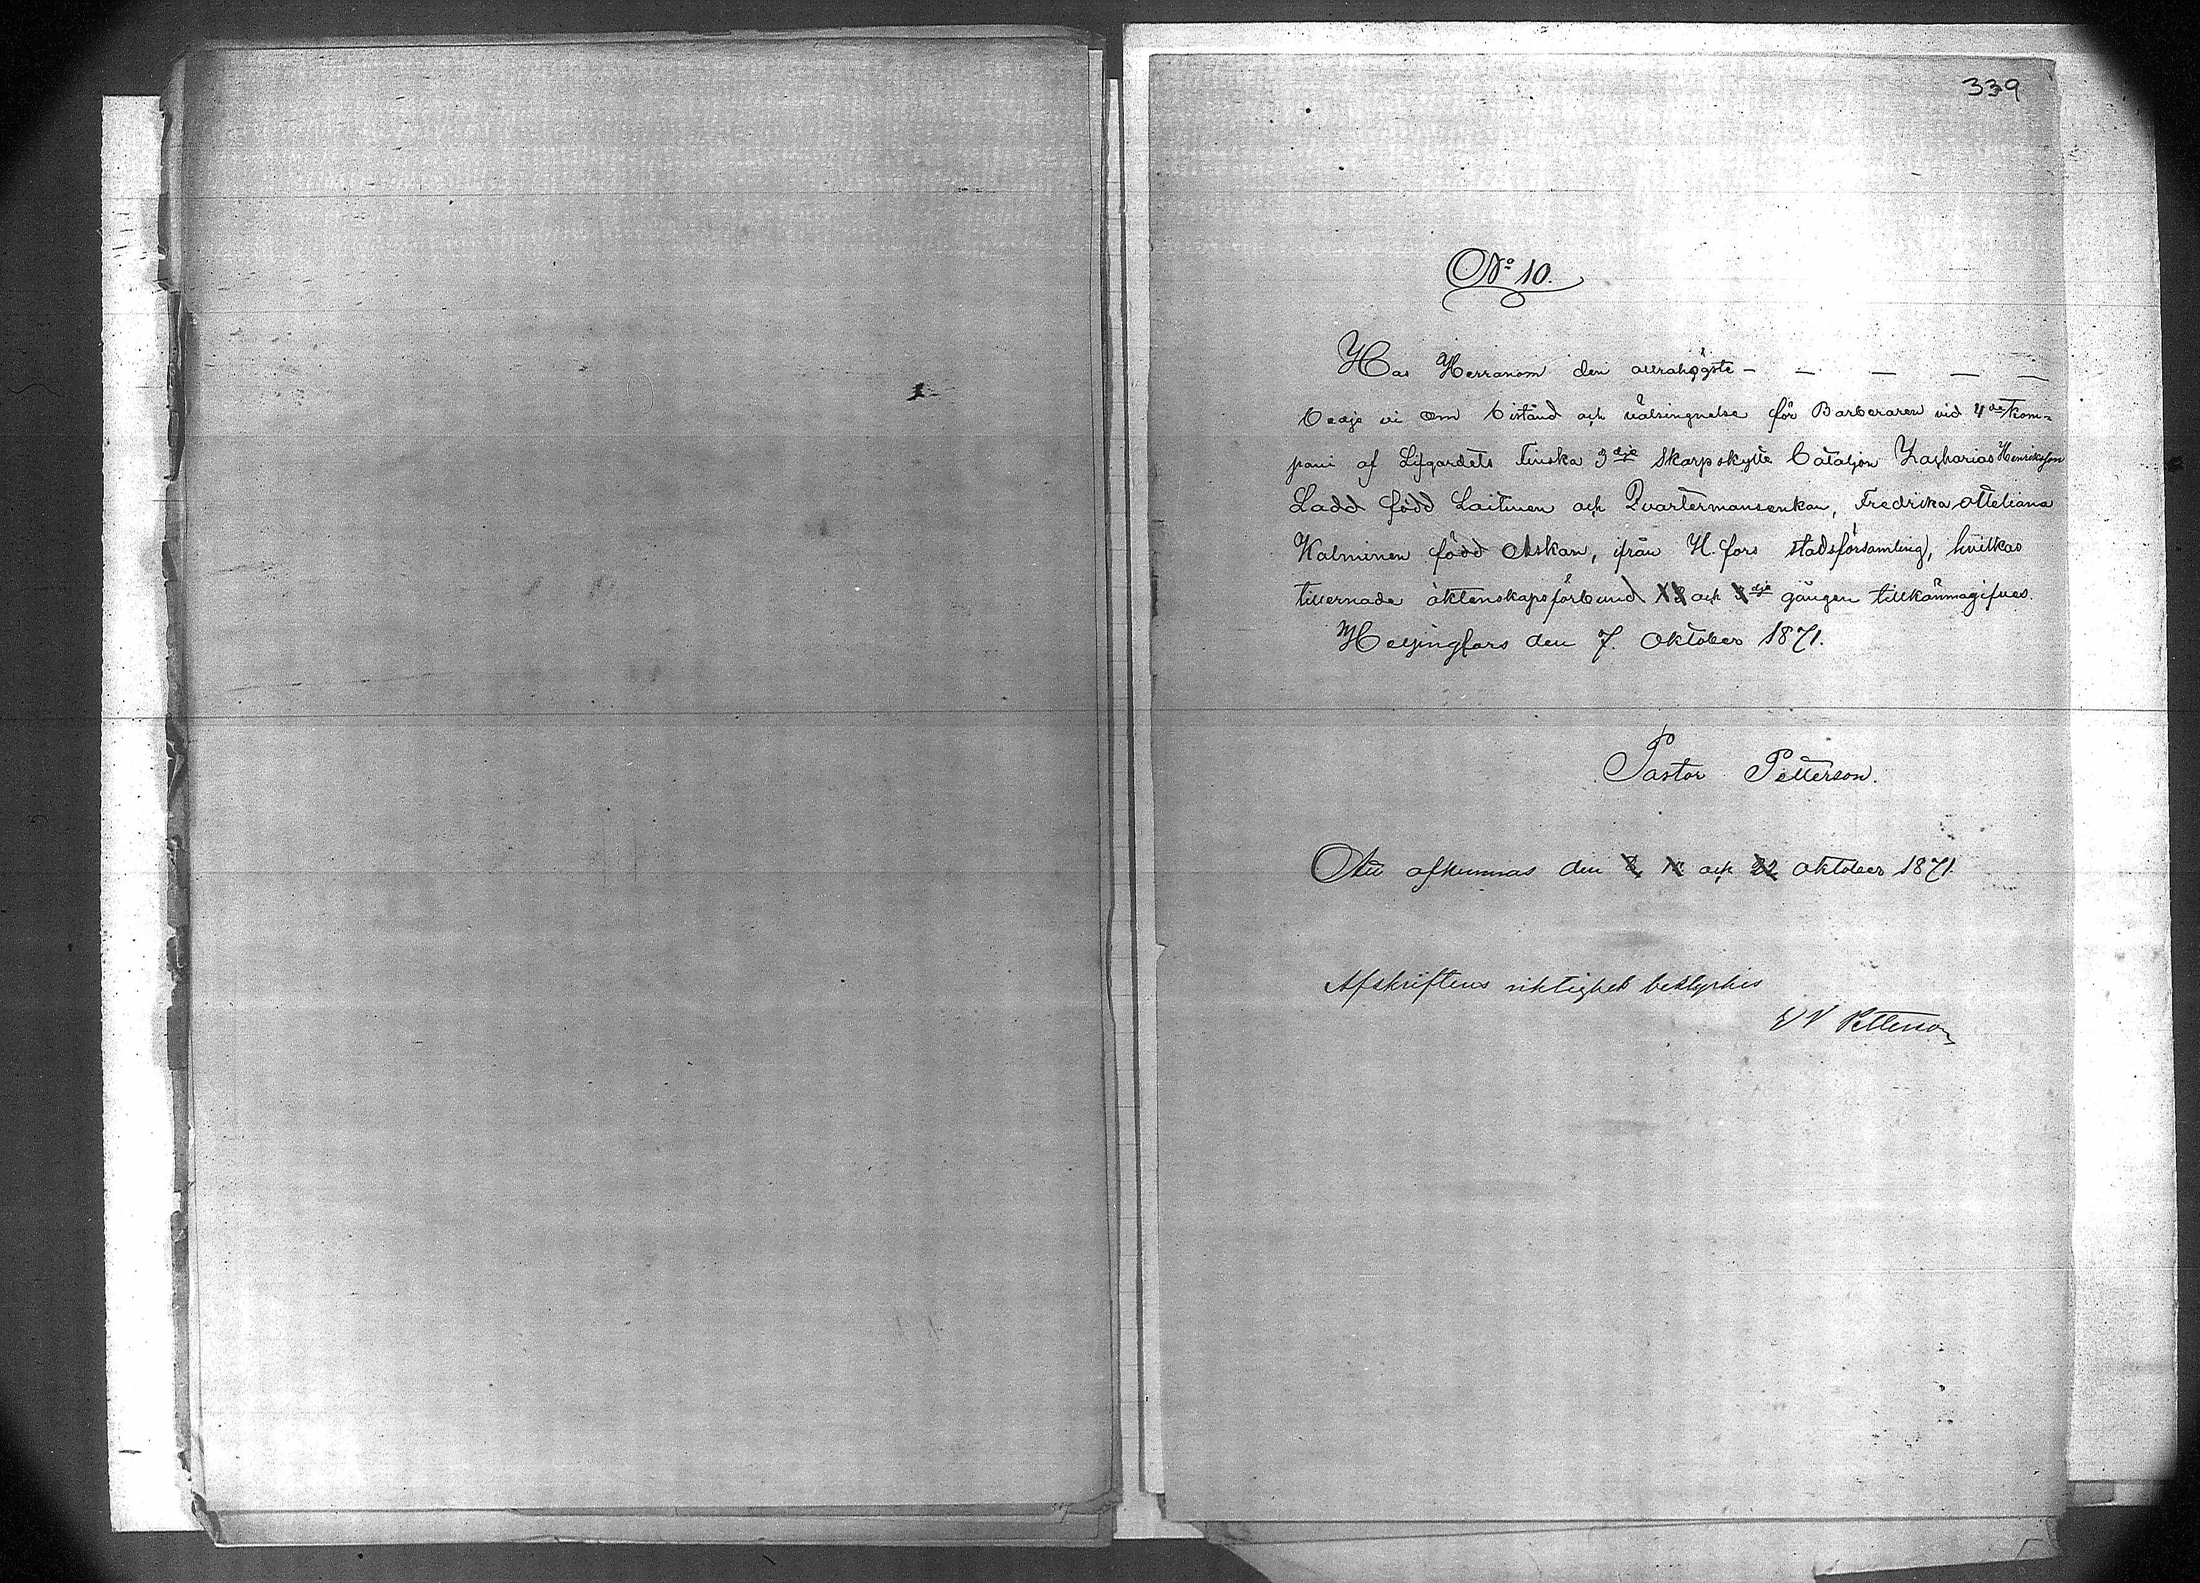 339
No 10.
Hos Herranom den allrahögste – – – – –
bedje vi om bistånd och välsingnelse för Barberaren vid 4de Kom-
pani af Lifgardets Finska 3dje Skarpskytte bataljon Zacharias Henriksson
Ladd född Laitinen och Qvartermansenkan, Fredrika Otteliana
Kalminen född Askan, ifrån H.fors stadsförsamling, hvilkas
tillernade äktenskapsförbund och 3dje gången tillkännagifves.
Helsingfors den 7. Oktober 1871.
Pastor Petterson.
Att afkunnas den 8, och 22 Oktober 1871.
Afskriftens riktighet bestyrkes
Petterson